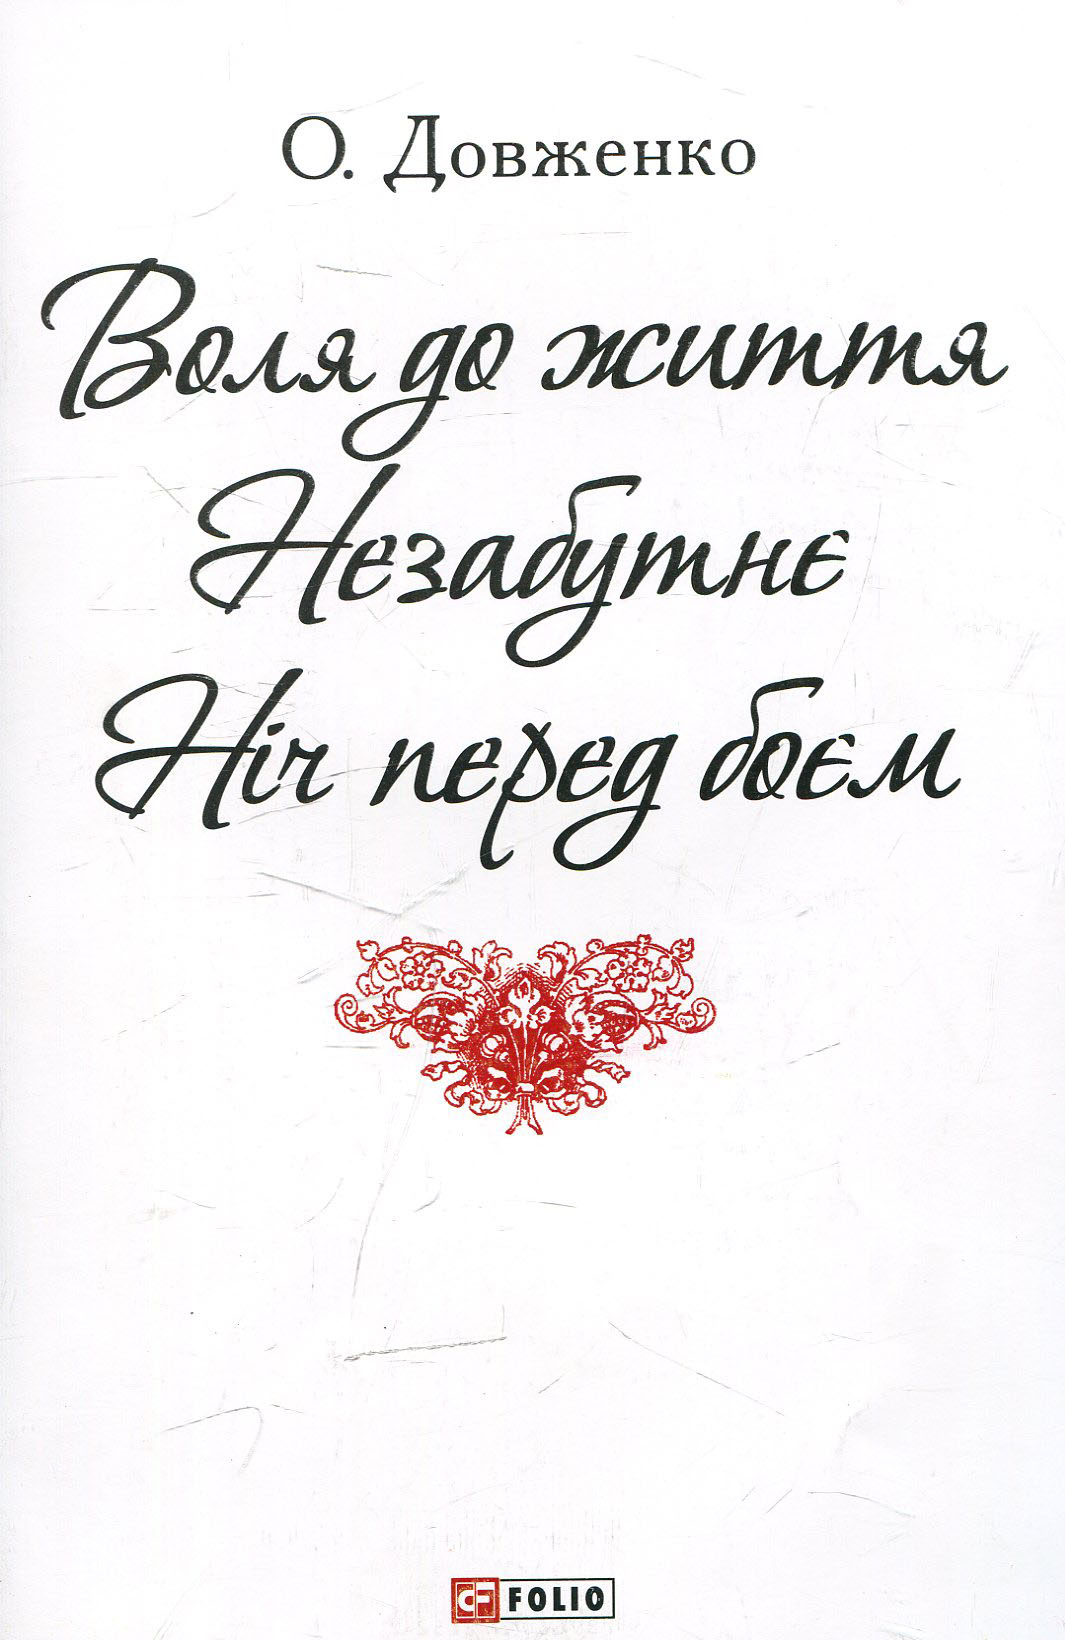 О. Довженко
Воля до життя
Незабутнє
Ніч перед боєм
CF FOLIO